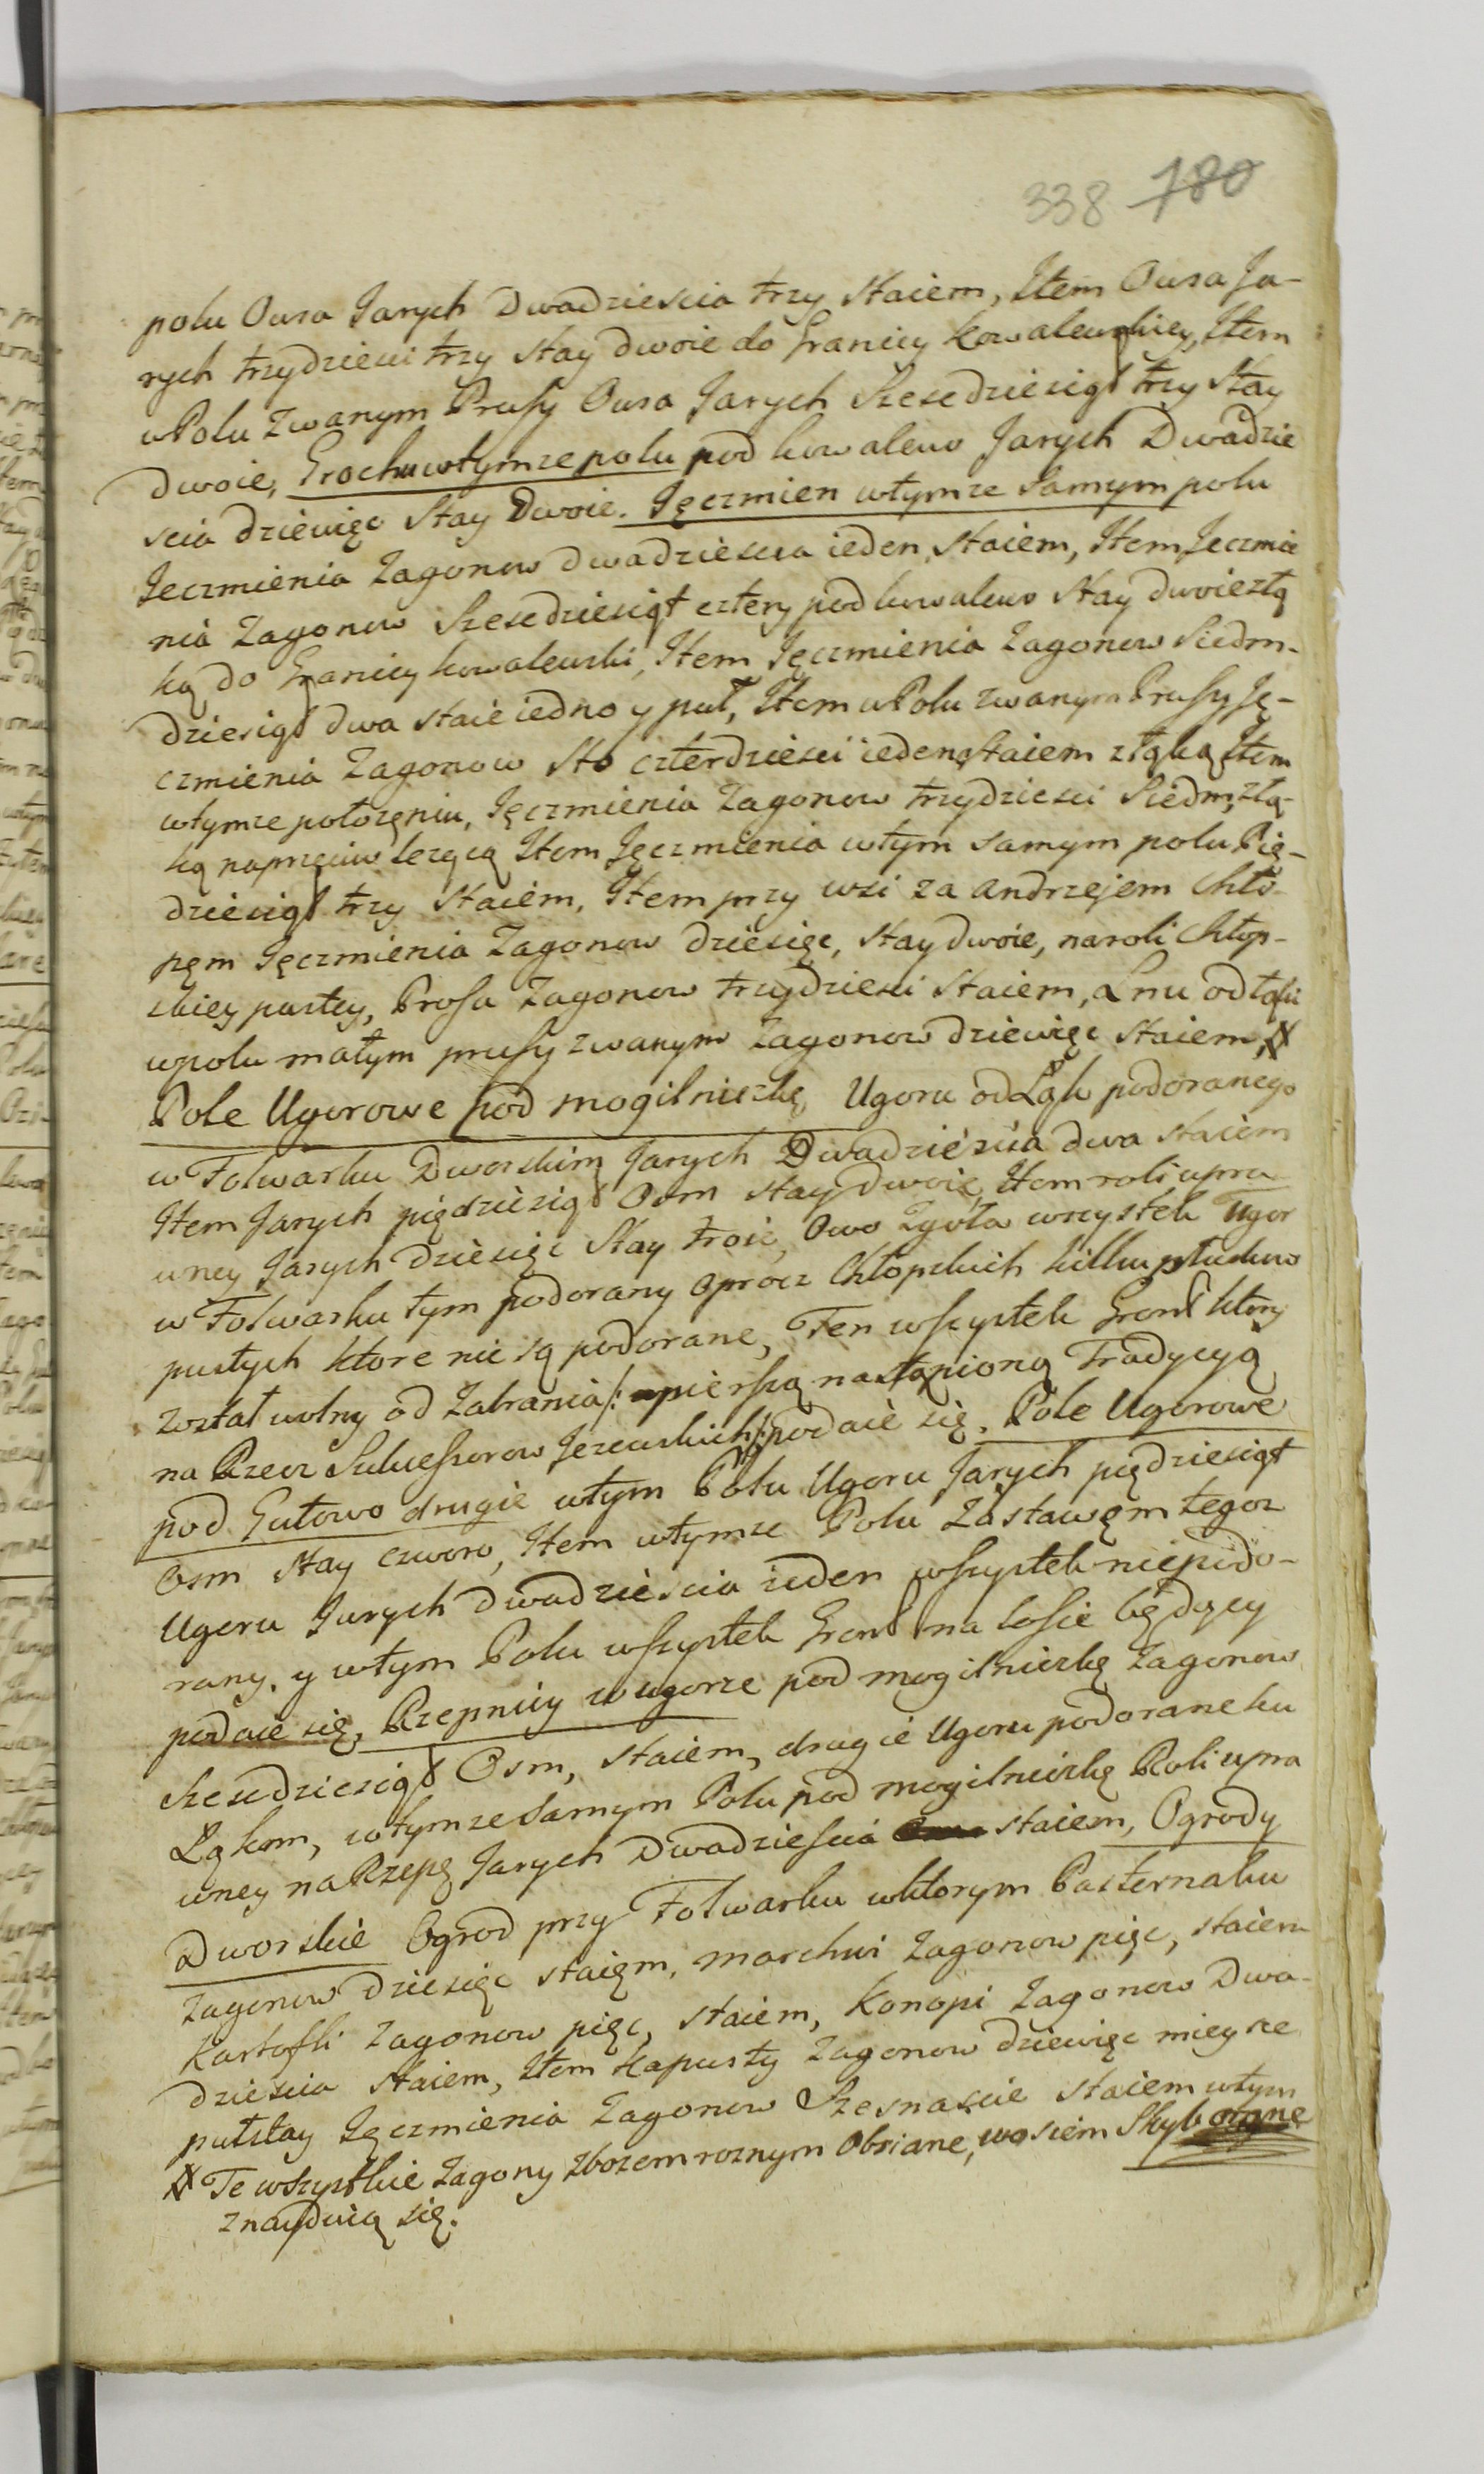 338 780
polu Owsa Jarych Dwadziescia trzy Staiem, Item Owsa Ja-
rych trzydziesci trzy Stay dwoie do Granicy kowalewskiey, Item
w Polu Zwanym Prusy Owsa Jarych Szescdziesiąt trzy Stay
dwoie, Grochu wtymze polu pod kowalewo Jarych Dwadzie
scia dziewięc Stay Dwoie. Jęczmien wtymze Samym polu
Jeczmienia Zagonow dwadziescia ieden, Staiem, Item Jeczmie
nia Zagonow Szescdziesiąt cztery pod kowalewo Stay dwoie złą
ką do Granicy kowalewski, Item Jęczmienia Zagonow Siedm-
dziesiąt dwa staie iedno y puł, Item w Polu zwanym Prusy Ję-
czmienia Zagonow Sto czterdziesci ieden Staiem złąką Item
wtymze połozęniu, Jęczmienia Zagonow trzydziesci Siedm, złą-
ką naprzeciw lezącą Item Jęczmienia wtym samym polu Pię-
dziesiąt trzy Staiem, Item przy wsi za Andrzejem Chło-
pęm Jęczmienia Zagonow dziesięc, Stay dwoie, naroli Chłop-
skiey pustey, Prosa Zagonow trzydziesci Staiem, Lnu od Łąki
wpolu małym prusy zwanym Zagonow dziewięc Staiem, #
Pole Ugorowe pod mogilniczkę Ugoru od Ląk podoranego
w Folwarku Dworskim Jarych Dwadziescia dwa staiem
Item Jarych pięcdziesiąt Osm stay dwoie, Item roli upra
wney Jarych dziesięc Stay troie, Owo Zgoła wszystek Ugor
w Folwarku tym podorany oprocz Chłopskich kilku płuskow
pustych ktore nie są podorane, Ten wszystek Gront ktory
został wolny od Zabrania /: pierszą nastąpioną Tradycyą
na Rzecz Sukcessorow Jezewskich :/ podaie się. Pole Ugorowe
pod Gutowo drugie wtym Polu Ugoru Jarych pięcdziesiąt
Osm Stay czworo, Item wtymze Polu Zastawęm tegoz
Ugoru Jarych dwadziescia ieden wszystek niepodo-
rany, y wtym Polu wszystek Gront na losie będący
podaie się, Rzepnicy w ugorze pod mogilniczkę Zagonow
szescdziesiąt Osm, Staiem, drugie Ugoru podorane ku
Ląkom, wtymze Samym Polu pod mogilniczkę Roli upra
wney na Rzepę Jarych Dwadziescia staiem, Ogrody
Dworskie Ogrod przy Folwarku wktorym Pasternaku
Zagonow dziesięc staięm, marchwi Zagonow pięc, staiem
Kartofli Zagonow pięc, staiem, Konopi Zagonow Dwa-
dziescia Staiem, Item kapusty Zagonow dziewięc mieysce
pułstay Jęczmienia Zagonow Szesnascie staiem wtym
# Te wszystkie Zagony Zbozem roznym Obsiane, wosiem Skyb orane
znayduią się.